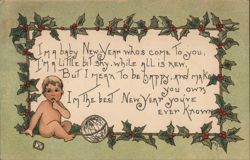 I'm a baby New Year who's come to you,
I'm a little bit shy, while all is new,
But I mean to be happy, and make
you own
I'm the best New Year you've
ever known